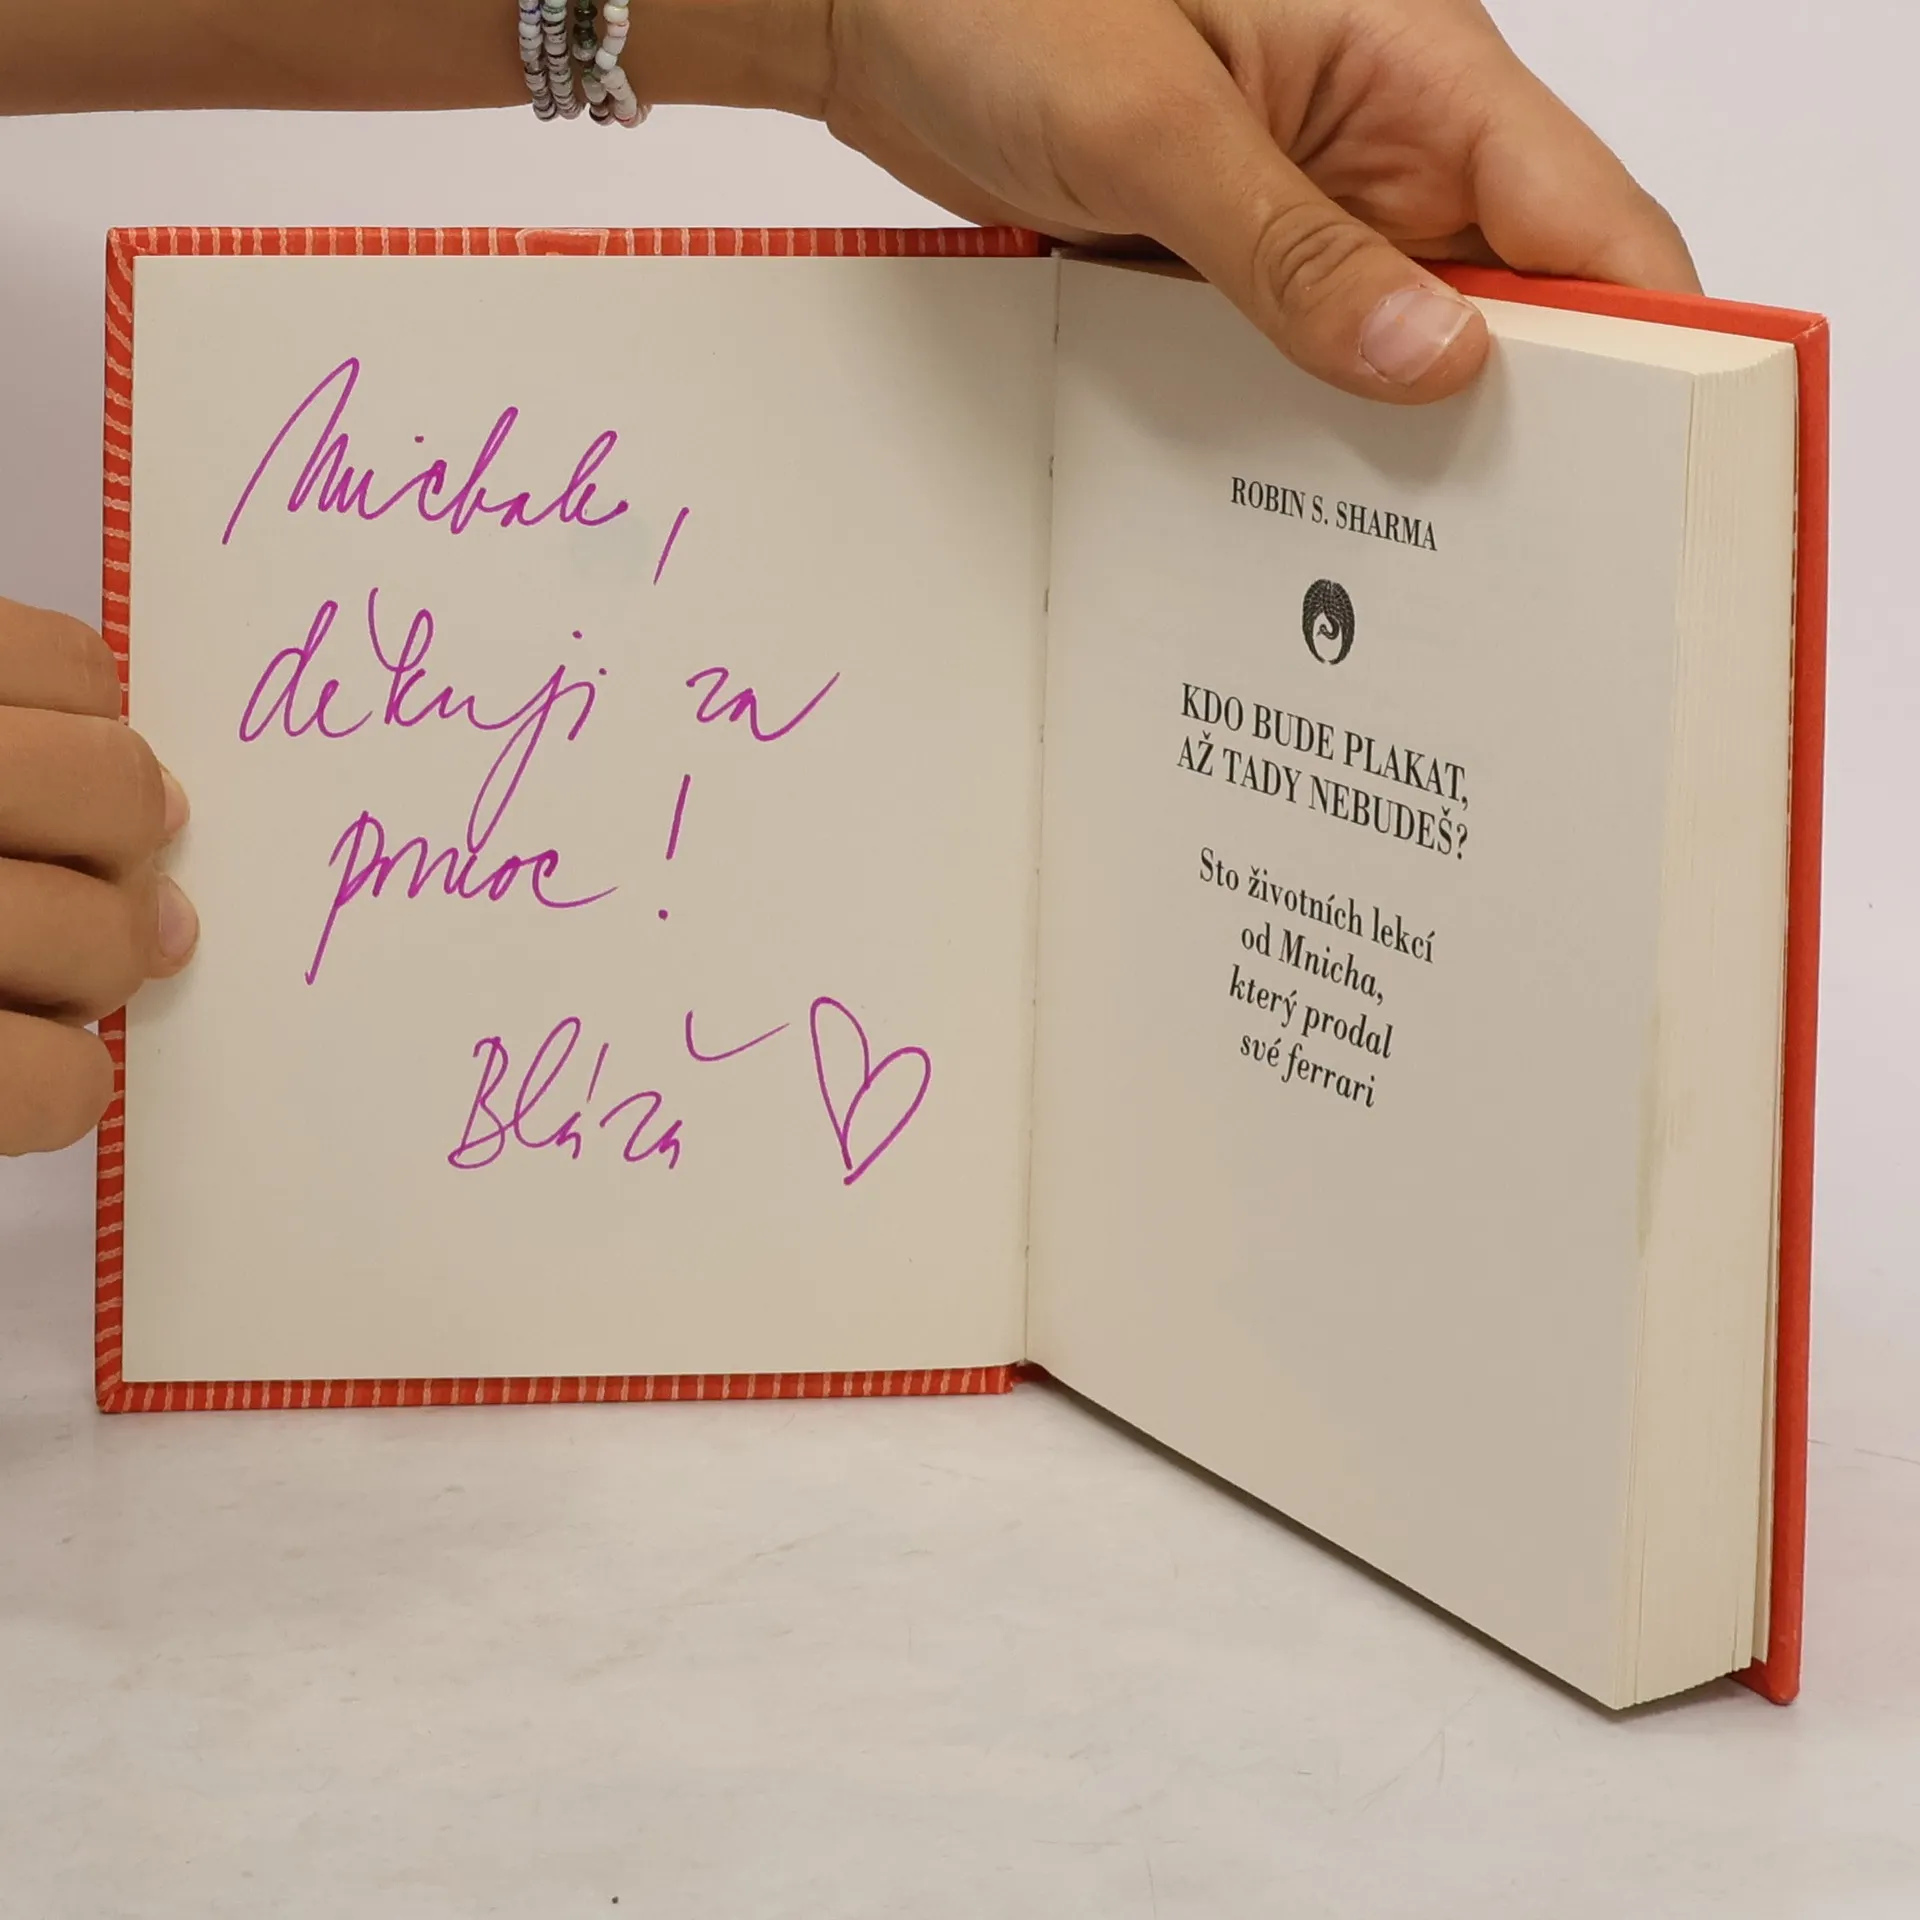 Michale,
děkuji za
pomoc!
Bláža
ROBIN S. SHARMA
KDO BUDE PLAKAT,
AŽ TADY NEBUDEŠ?
Sto životních lekcí
od Mnicha,
který prodal
své ferrari